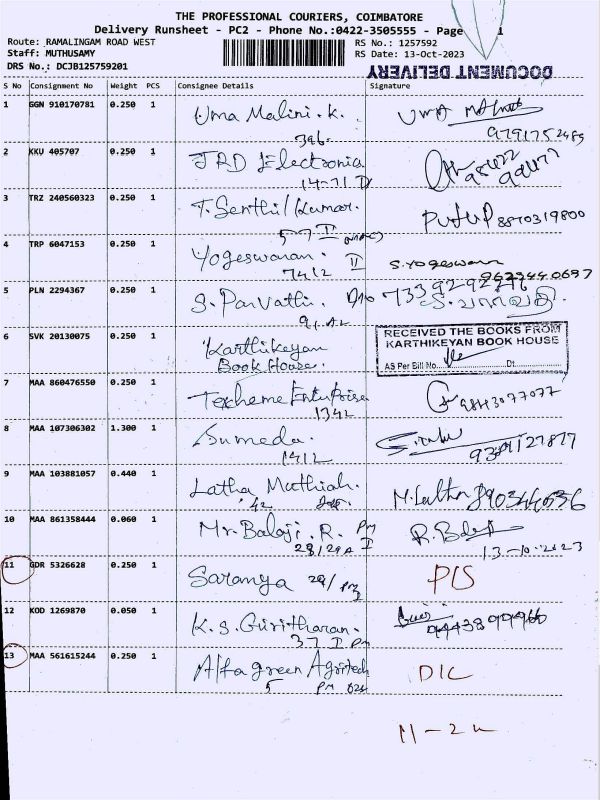 THE PROFESSIONAL COURIERS, COIMBATORE
Delivery Runsheet - PC2 - Phone No.:0422-3505555 - Page 1
Route: RAMALINGAM ROAD WEST RS No.: 1257592
Staff: MUTHUSAMY RS Date: 13-Oct-2023
DRS No.: DCJB125759201
DOCUMENT DELIVERY
S No Consignment No Weight PCS Consignee Details Signature
1 GGN 910170781 0.250 1 Uma Malini. K. Uma
396 9791752485
2 KKU 405707 0.250 1 JRD Electronics
14-71
3 TRZ 240560323 0.250 1 T. Senthil Kumar. 8870319800
57 I
4 TRP 6047153 0.250 1 Yogeswaran. II S. Yogeswaran
7412
5 PLN 2294367 0.250 1 S. Parvathi. 7339292276
6 SVK 20130075 0.250 1 Karthikeyan
Book House.
RECEIVED THE BOOKS FROM
KARTHIKEYAN BOOK HOUSE
AS Per Bill No. Dt.
7 MAA 860476550 0.250 1 Texheme Enterprise 9843077077
1342
8 MAA 107306302 1.300 1 Sumeda.
1412
9 MAA 103881057 0.440 1 Latha Muthiah. M. Latha
42
10 MAA 861358444 0.060 1 Mr. Balaji. R. PM
28/29A I 13-10-2023
11 GDR 5326628 0.250 1 Saranya 29/ PIS
12 KOD 1269870 0.050 1 K.S. Giritharan.
37 I PM
13 MAA 561615244 0.250 1 Alfagreen Agritech DIC
5 PM
11-2